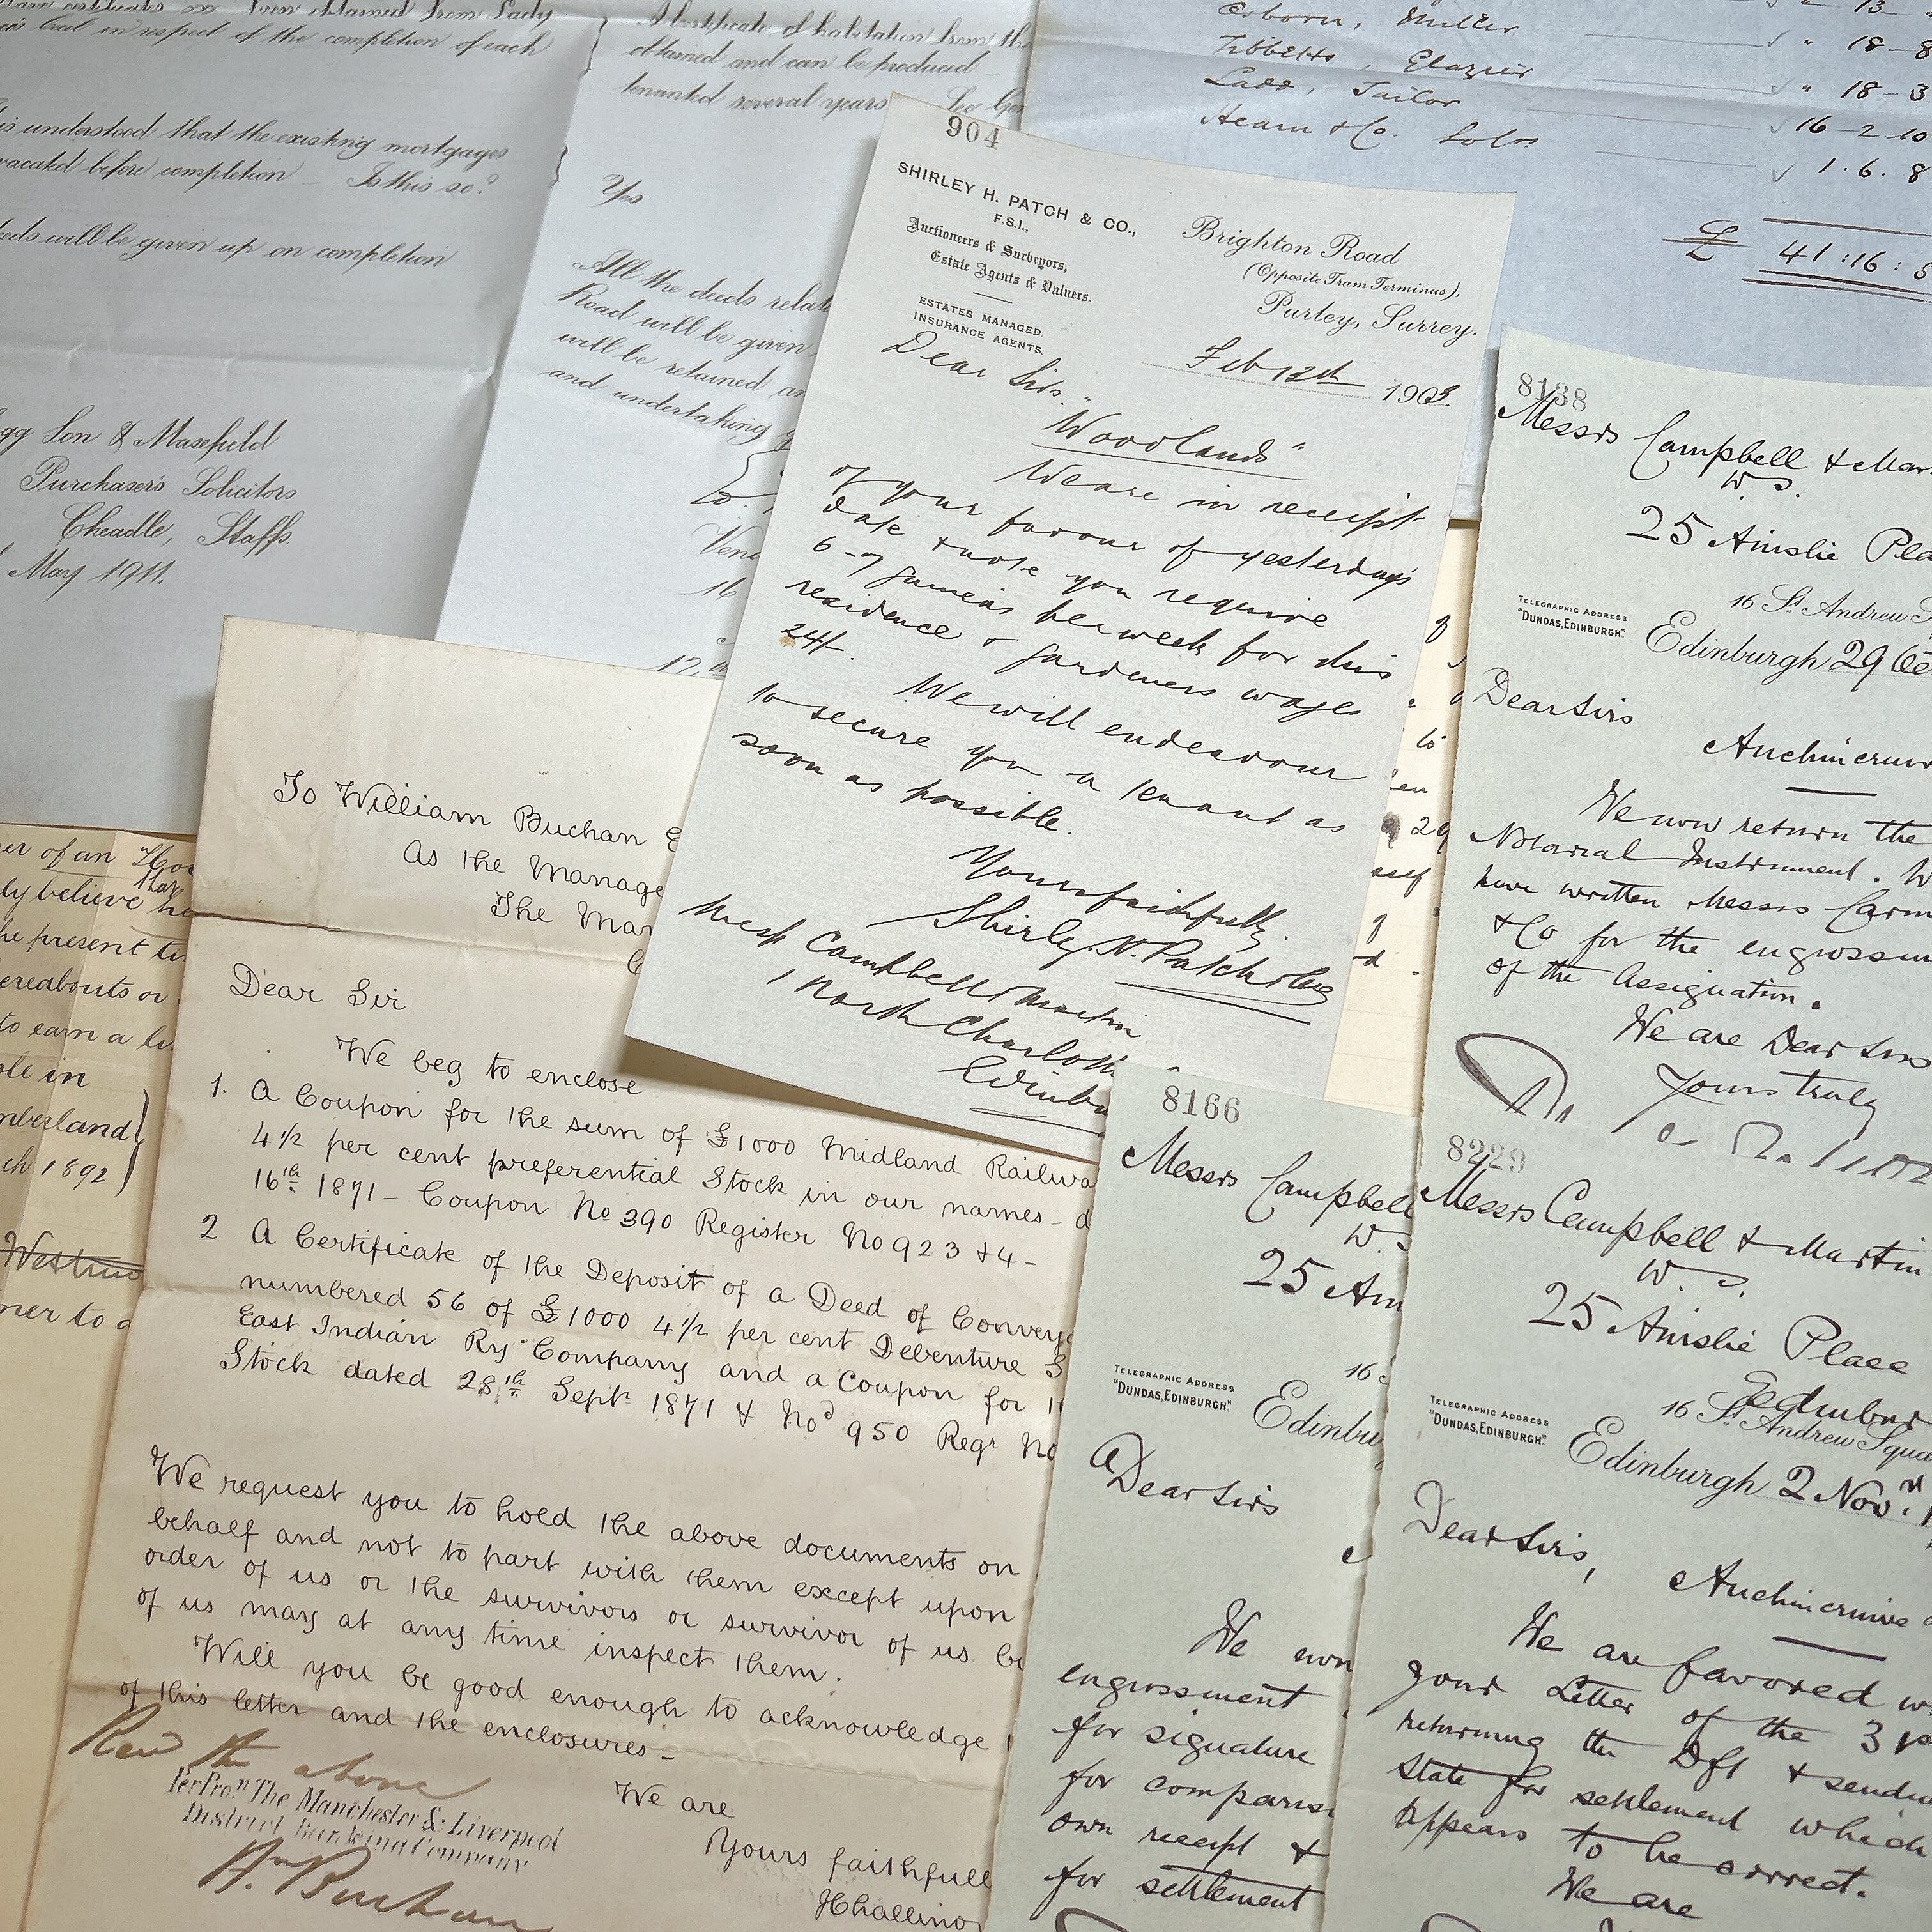 obtained from Lady
in respect of the completion of each
is understood that the existing mortgages
vacated before completion – Is this so?
will be given up on completion
Son & Masefield
Purchasers Solicitors
Cheadle, Staffs.
May 1911.
A certificate of habitation from the
obtained and can be produced
tenanted several years
Yes
All the deeds
Road will be given
will be retained
and undertaking
16
Osborn, Miller
Tibbetts, Glazier
Ladd, Tailor
Hearn & Co. Solrs
" 18-8
" 18-3
16-2-10
1.6.8
£ 41:16:5
904
SHIRLEY H. PATCH & CO.,
F.S.I.,
Auctioneers & Surveyors,
Estate Agents & Valuers.
ESTATES MANAGED.
INSURANCE AGENTS.
Brighton Road
(Opposite Tram Terminus).
Purley, Surrey.
Feb 12th 1903.
Dear Sirs.
"Woodlands"
We are in receipt
of your favour of yesterday's
date & note you require
6-7 guineas per week for this
residence & gardeners wages
24/-.
We will endeavour
to secure you a tenant as
soon as possible.
Yours faithfully.
Shirley H. Patch & Co
Messrs Campbell & Martin
1 North Charlotte
8138
Messrs Campbell &
W.S.
25 Ainslie
16 St. Andrew
TELEGRAPHIC ADDRESS
"DUNDAS, EDINBURGH."
Edinburgh 29
Dear Sirs
We now return the
Notarial Instrument. W
have written Messrs
& Co for the
of the Assignation.
We are Dear Sirs
Yours truly
To William Buchan
As the Manage
The
Dear Sir
We beg to enclose
1. A Coupon for the sum of £1000 Midland Railwa
4½ per cent preferential Stock in our names – d
16th 1871 – Coupon No 390 Register No 923 & 4 –
2 A Certificate of the Deposit of a Deed of
numbered 56 of £1000 4½ per cent Debenture S
East Indian Ry. Company and a Coupon for
Stock dated 28th Septr 1871 & Nod 950 Regr No
We request you to hold the above documents on
behalf and not to part with them except upon
order of us or the survivors or survivor of us
of us may at any time inspect them.
Will you be good enough to acknowledge
of this letter and the enclosures –
We are
Yours faithfull
Recd the above
Per Pron The Manchester & Liverpool
District Banking Company
Wm Buchan
of an
ly believe that he
he present
ereabouts or
to earn a
in
mberland
ch 1892
ner to
8166
Messrs Campbell
W.
25
16
TELEGRAPHIC ADDRESS
"DUNDAS, EDINBURGH."
Edinbu
Dear Sirs
We
engrossment
for signature
for
own receipt &
for settlement
8229
Messrs Campbell & Martin
W.S.
25 Ainslie Place
16 St. Andrew Squa
TELEGRAPHIC ADDRESS
"DUNDAS, EDINBURGH."
Edinburgh 2 Novr.
Dear Sirs,
Auchincruive
We are favored
your Letter of the 31st
returning the Dft &
State for settlement which
appears to be correct.
We are